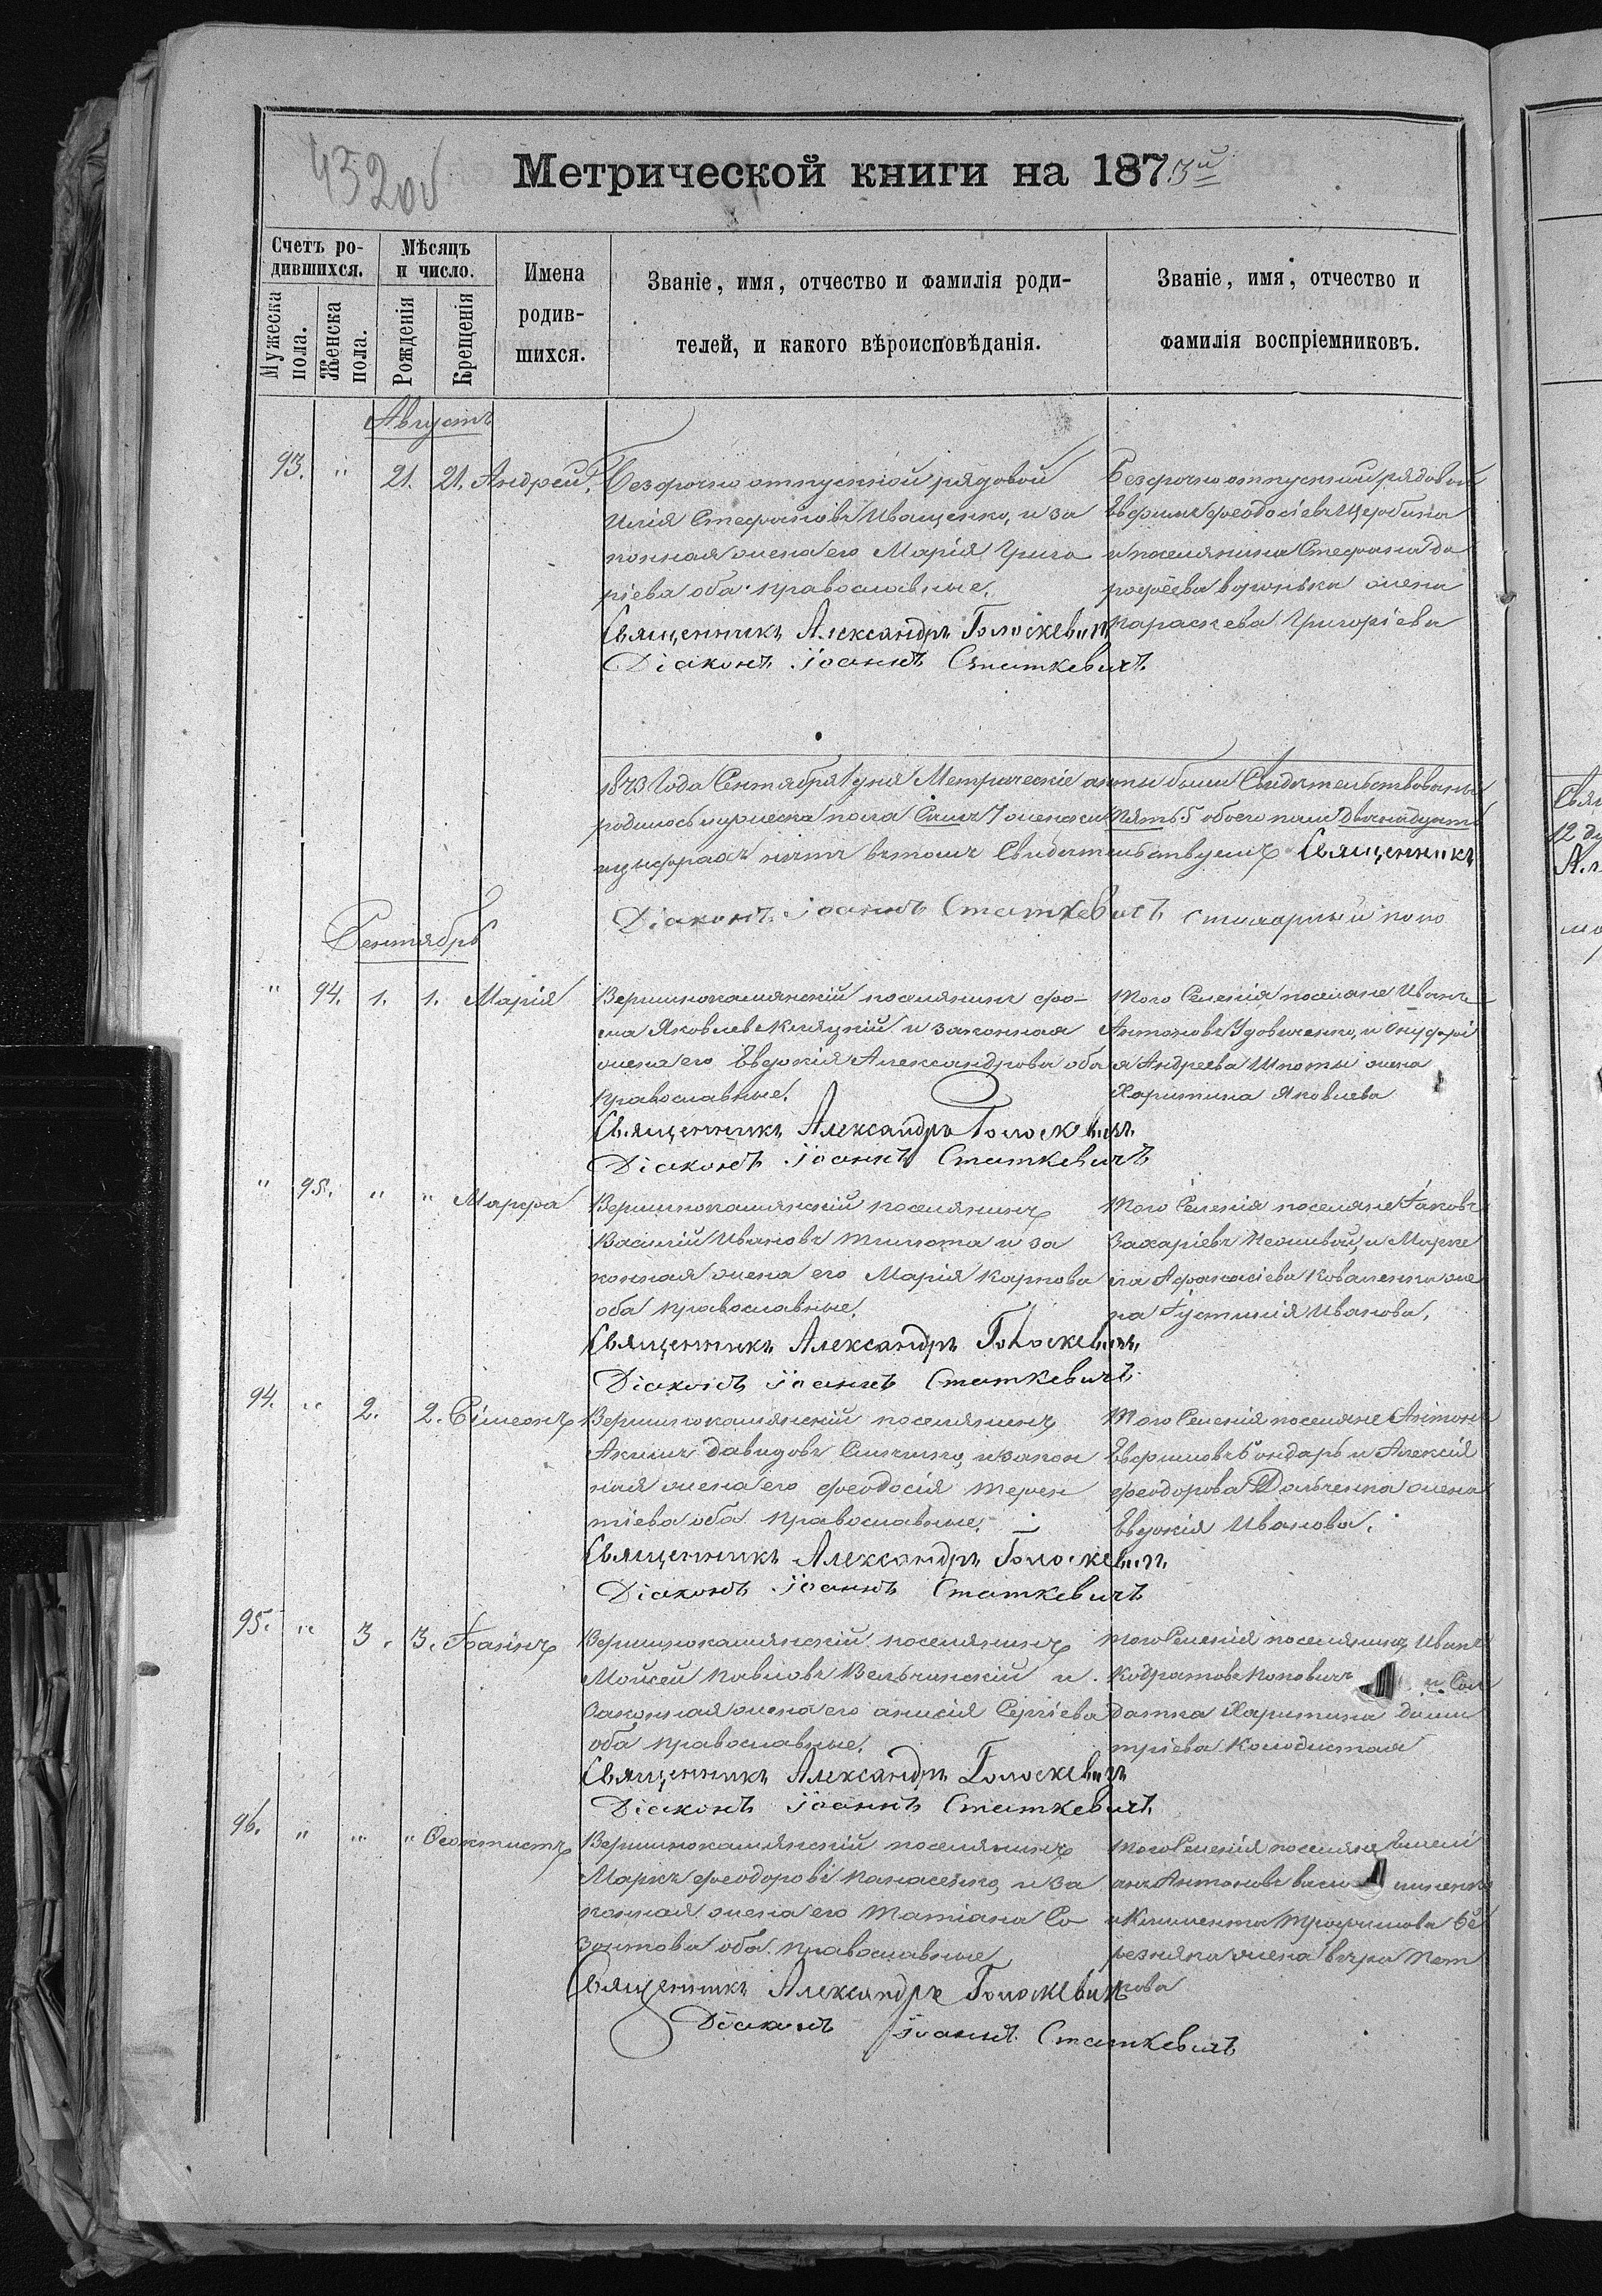 432 об
Метрической книги на 1873й
Счетъ родившихся.
Мужеска пола.
Женска пола.
Мѣсяцъ и число.
Рожденія
Крещенія
Имена родившихся.
Званіе, имя, отчество и фамилія родителей, и какого вѣроисповѣданія.
Званіе, имя, отчество и фамилія воспріемниковъ.
Августъ
93. " 21. 21. Андрей.
Безсрочно отпускной рядовой
Илія Стефановъ Иващенко, и за
конная жена его Марія Григо
ріева оба православные.
Священникъ Александръ Голоскевичъ
Діаконъ Іоаннъ Статкевичъ
Безсрочно отпускный рядовой
Ефимъ Феодосіевъ Щербина
и поселянина Стефана До
рофеева жена
Параскева Григоріева
1873 Года Сентября 1 дня Метрическіе акты были Свидетельствованы
родилось мужеска пола Семь 7 женска Пять 5 обоего пола двенадцать
въ томъ Свидетельствуемъ Священникъ
Діаконъ Іоаннъ Статкевичъ
Сентябрь
" 94. 1. 1. Марія
Вершинокамянскій поселянинъ Фо-
ма Яковлевъ и законная
жена его Евдокія Александрова оба
православные.
Священникъ Александръ Голоскевичъ
Діаконъ Іоаннъ Статкевичъ
того Селенія поселяне Иванъ
Антоновъ Удовиченко, и Онуфрі
я Андреева Шпоты жена
Харитина Яковлева
" 95. " " Марфа
Вершинокамянскій поселянинъ
Василій Ивановъ и за
конная жена его Марія Карпова
оба православные.
Священникъ Александръ Голоскевичъ
Діаконъ Іоаннъ Статкевичъ
того Селенія поселяне Іаковъ
Захаріевъ и Марке
ла Афанасіева Коваленка же
на Іустинія Иванова.
94. " 2. 2. Сімеонъ
Вершинокамянскій поселянинъ
Акимъ Давидовъ и закон
ная жена его Феодосія Терен
тіева оба православные.
Священникъ Александръ Голоскевичъ
Діаконъ Іоаннъ Статкевичъ
того Селенія поселяне Антонъ
Евфимовъ Бондарь и Алексія
Феодорова жена
Евдокія Иванова.
95. " 3. 3. Іоаннъ
Вершинокамянскій поселянинъ
Мойсей Павловъ Вельчинскій и
Законная жена его Анисія Сергіева
оба православные.
Священникъ Александръ Голоскевичъ
Діаконъ Іоаннъ Статкевичъ
того Селенія поселянинъ Иванъ
Кодратовъ Поповичъ и Сол
датка Харитина Дими
тріева Колодистая
96. " " " Феоктистъ
Вершинокамянскій поселянинъ
Маркъ Феодоровъ Панасенко, и за
конная жена его Татіана Со
зонтова оба православные
Священникъ Александръ Голоскевичъ
Діаконъ Іоаннъ Статкевичъ
того Селенія поселяне Емелі
анъ Антоновъ
и Климента Трофимова Бе
резняка жена Вера Пет
рова